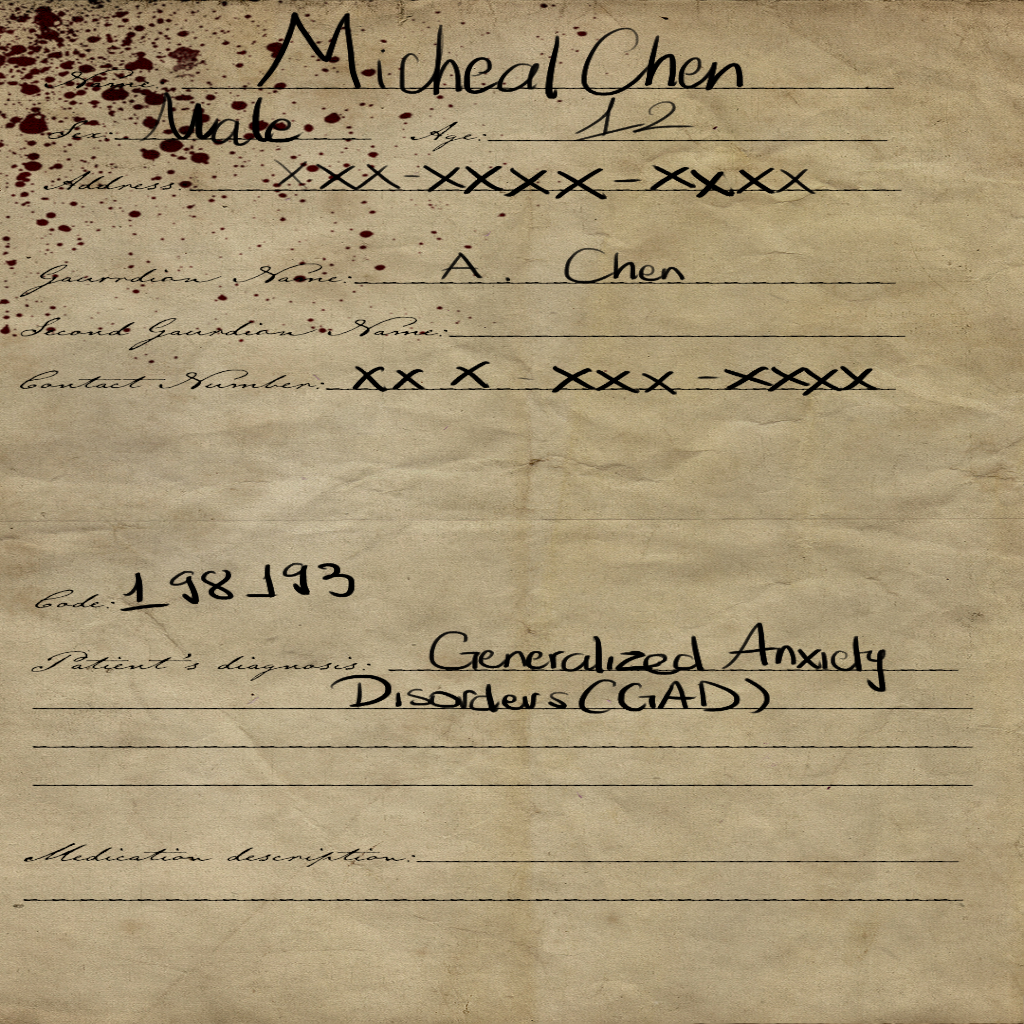 Name: Micheal Chen
Sex: Male Age: 12
Address: XXX-XXXX-XXXX
Gaurrdian Name: A. Chen
Second Gaurdian Name:
Contact Number: XXX-XXX-XXXX
Code: 198193
Patient's diagnosis: Generalized Anxiety
Disorders (GAD)
Medication description: